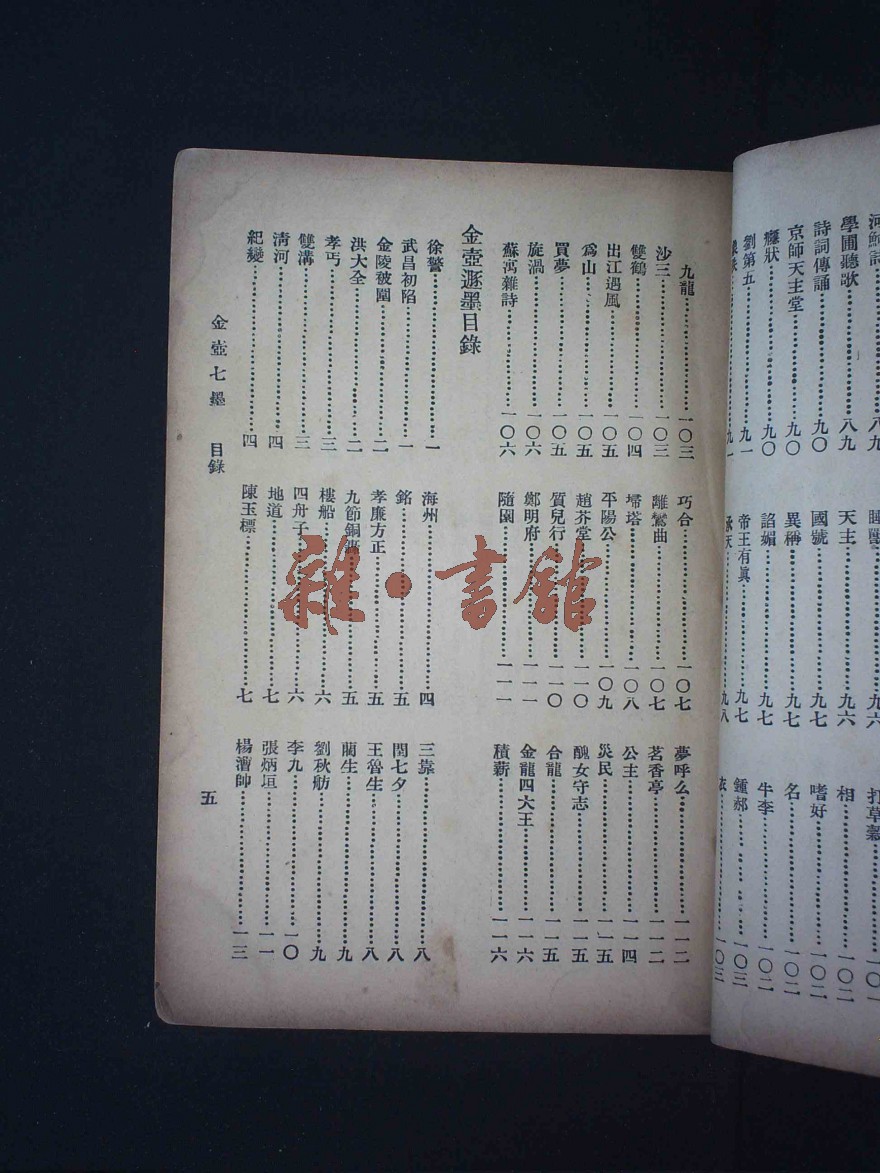 學圃聽歌⋯⋯八九
詩詞傳誦⋯⋯九〇
京師天主堂⋯⋯九〇
癮狀⋯⋯九〇
劉第五⋯⋯九一
天主⋯⋯九六
國號⋯⋯九七
異稱⋯⋯九七
諂媚⋯⋯九七
帝王有眞⋯⋯九七
承天⋯⋯九八
打草穀
相⋯⋯一〇二
嗜好⋯⋯一〇二
名⋯⋯一〇二
牛李⋯⋯一〇二
鍾郝⋯⋯一〇三
九龍⋯⋯一〇三
沙三⋯⋯一〇三
雙鶴⋯⋯一〇四
出江遇風⋯⋯一〇五
爲山⋯⋯一〇五
買夢⋯⋯一〇五
旋渦⋯⋯一〇六
蘇寓雜詩⋯⋯一〇六
巧合⋯⋯一〇七
離鸞曲⋯⋯一〇七
埽塔⋯⋯一〇八
平陽公⋯⋯一〇九
趙芥堂⋯⋯一一〇
質兒行⋯⋯一一〇
鄭明府⋯⋯一一一
隨園⋯⋯一一一
夢呼么⋯⋯一一二
茗香亭⋯⋯一一二
公主⋯⋯一一四
災民⋯⋯一一五
醜女守志⋯⋯一一五
合龍⋯⋯一一五
金龍四大王⋯⋯一一六
積薪⋯⋯一一六
金壺遯墨目錄
徐警⋯⋯一
武昌初陷⋯⋯一
金陵被圍⋯⋯二
洪大全⋯⋯二
孝丐⋯⋯三
雙溝⋯⋯三
清河⋯⋯四
紀變⋯⋯四
海州⋯⋯四
銘⋯⋯五
孝廉方正⋯⋯五
九節銅⋯⋯五
樓船⋯⋯六
四舟子⋯⋯六
地道⋯⋯七
陳玉標⋯⋯七
三靠⋯⋯八
閏七夕⋯⋯八
王魯生⋯⋯八
蘭生⋯⋯九
劉秋舫⋯⋯九
李九⋯⋯一〇
張炳垣⋯⋯一一
楊漕帥⋯⋯一三
金壺七墨 目錄
五
雜·書館